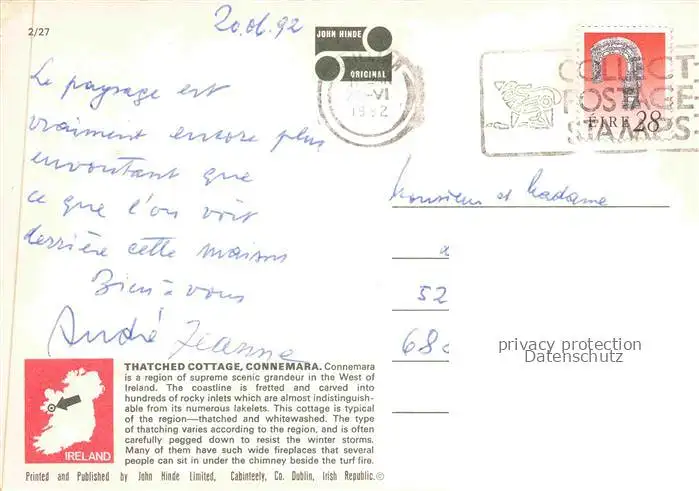 2/27
20.06.92
JOHN HINDE
ORIGINAL
VI
1992
COLLECT
POSTAGE
STAMPS
ÉIRE 28
Le paysage est
vraiment encore plus
envoutant que
ce que l'on voit
derrière cette maison
Bien à vous
André Jeanne
Monsieur et Madame
52
68
privacy protection
Datenschutz
IRELAND
THATCHED COTTAGE, CONNEMARA. Connemara
is a region of supreme scenic grandeur in the West of
Ireland. The coastline is fretted and carved into
hundreds of rocky inlets which are almost indistinguish-
able from its numerous lakelets. This cottage is typical
of the region—thatched and whitewashed. The type
of thatching varies according to the region, and is often
carefully pegged down to resist the winter storms.
Many of them have such wide fireplaces that several
people can sit in under the chimney beside the turf fire.
Printed and Published by John Hinde Limited, Cabinteely, Co. Dublin, Irish Republic.©